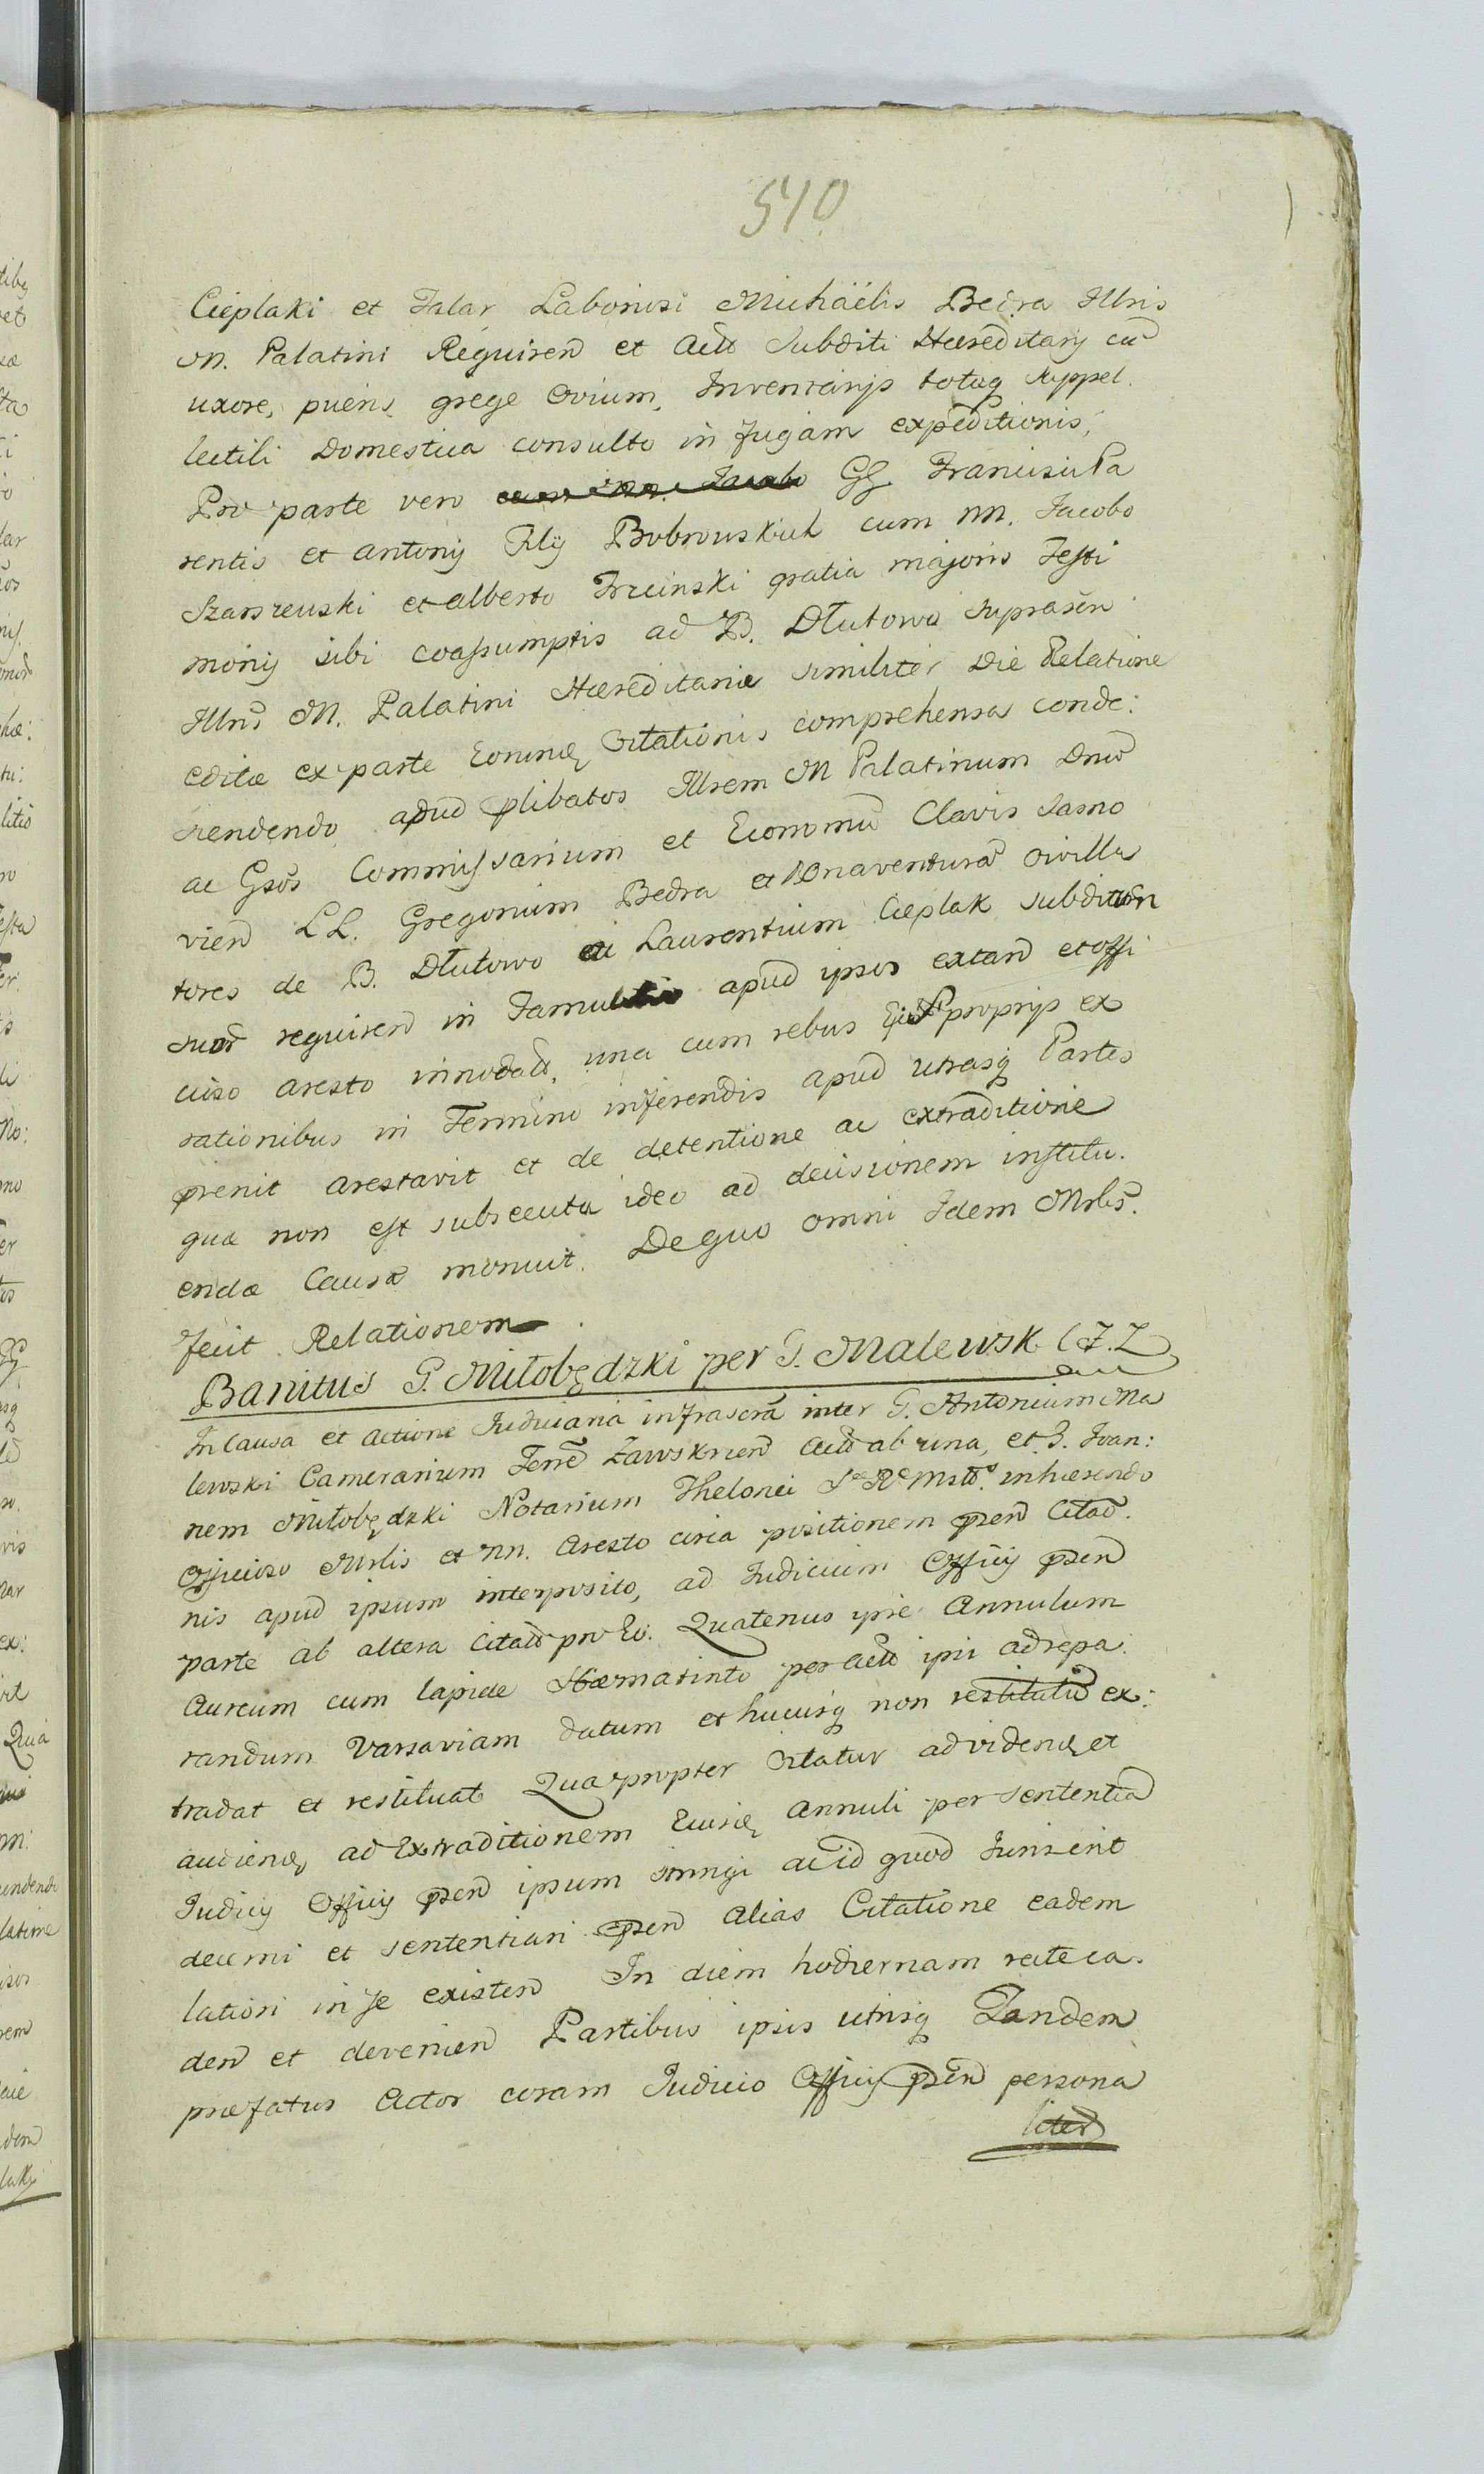 510
Cieplaki et Talar Laboriosi Michäelis Bedra Illris
M. Palatini Requiren et Actt Subditi Hæreditarij cū
uxore, pueris grege Ovium, Inventarijs totaq suppel.
lectili Domestica consulto in fugam expeditionis,
Pro parte vero GG. Francisci Pa
rentis et Antonij Filij Bobrowskich cum nn. Jacobo
Szarszewski et Alberto Trzcinski gratia majoris Testi
monij sibi coassumptis ad B. Dłutowo suprascrn
Illris M. Palatini Hæreditaria similiter Die Relatione
editæ ex parte Eorund Citationis comprehensa conde:
scendendo apud plibatos Illrem M Palatinum Dnum
ac Gsōs Commissarium et Economū Clavis Sarno
vien LL. Gregorium Bedra et Bonaventurā civilla
tores de B. Dłutowo ac Laurentium Cieplak subditum
suōr requiren in Famulitio apud ipsos extan et offi
cioso aresto innodatt, una cum rebus Ejus propriis ex
rationibus in Termino inferendis apud utrasq Partes
prenit arestavit et de detentione ac extraditione
quæ non est subsecuta ideo ad decisionem institu.
endæ Causæ monuit. De quo omni Idem Mrlis.
fecit Relationem.
Banitus G. Miłobędzki per G. Malewsk C.T.Z
In Causa et Actione Judiciaria infrascra inter G. Antonium Ma
lewski Camerarium Terræ Zawskrnen Actt ab una, et G. Joan:
nem Miłobędzki Notarium Thelonei inhærendo
Officioso Mrlis et nn. Aresto circa positionem psen Citaō.
nis apud ipsum interposito, ad Judicium Officij psen
parte ab altera Citatt pro Eo. Quatenus ipse Annulum
Aureum cum lapide Hæmatinto per Actt ipsi ad repa:
randum Varsaviam datum et hucusq non restitutū ex:
tradat et restituat Quapropter Citatur ad vidend et
audiend ad Extraditionem Eiusd Annuli per sententiā
Judicij Officij psen ipsum stringi ac id quod Juris erit
decerni et sententiari psen alias Citatione eadem
latiori in se existen In diem hodiernam recte ca.
den et devenien Partibus ipsis utrisq Tandem
præfatus Actor coram Judicio Officij psen persona
liter